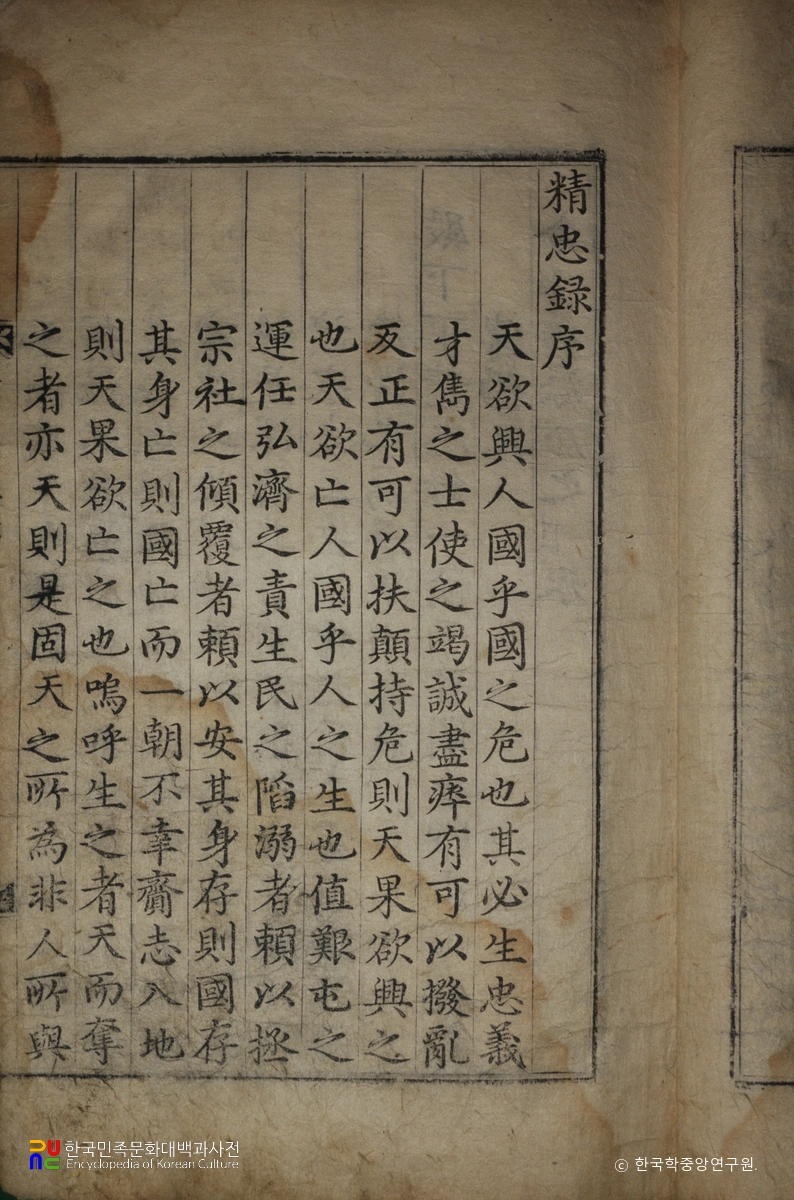 精忠録序
天欲興人國乎國之危也其必生忠義
才雋之士使之竭誠盡瘁有可以撥亂
反正有可以扶顛持危則天果欲興之
也天欲亡人國乎人之生也值艱屯之
運任弘濟之責生民之陷溺者頼以拯
宗社之傾覆者頼以安其身存則國存
其身亡則國亡而一朝不幸齎志入地
則天果欲亡之也嗚呼生之者天而奪
之者亦天則是固天之所為非人所與
한국민족문화대백과사전
Encyclopedia of Korean Culture
ⓒ 한국학중앙연구원.